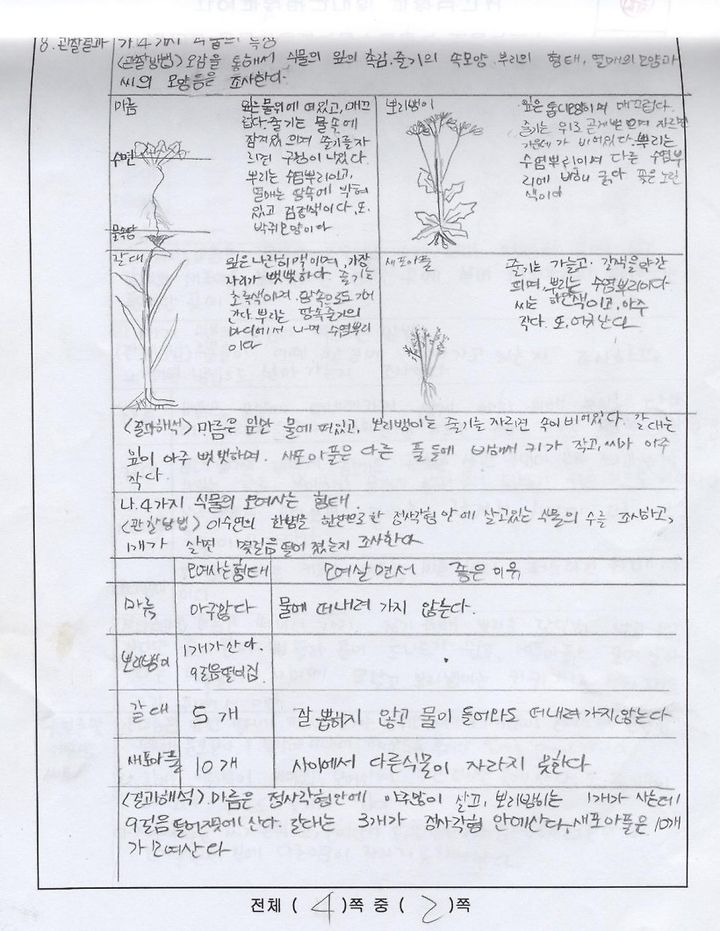 8. 관찰결과 가. 4가지 식물의 특징
<관찰방법> 오감을 통해서 식물의 잎의 촉감, 줄기의 속모양, 뿌리의 형태, 열매의 모양과
씨의 모양등을 조사한다.
마름
수면
물속땅
잎는 물위에 떠있고, 매끄
럽다. 줄기는 물속에
잠겨있으며 줄기를 자
르면 구멍이 나있다.
뿌리는 수염뿌리이고,
열매는 땅속에 박혀
있고 검정색이다. 또,
박쥐모양이다
보리뱅이
잎은 톱니모양이며 매끄럽다.
줄기는 위로 곧게 뻗으며 자르면
가운데가 비어있다. 뿌리는
수염뿌리이며 다른 수염뿌
리에 비해 굵다 꽃은 노란
색이다
갈대
잎은 나란히맥이며, 가장
자리가 뻣뻣하다 줄기는
초록색이며, 땅속으로도 기어
간다 뿌리는 땅속줄기의
마디에서 나며 수염뿌리
이다
새포아풀
줄기는 가늘고 갈색을 약간
띄며, 뿌리는 수염뿌리이다
씨는 하얀색이고, 아주
작다. 또,
<결과해석> 마름은 잎만 물에 떠있고, 보리뱅이는 줄기를 자르면 속이 비어있다. 갈대는
잎이 아주 뻣뻣하며. 새포아풀은 다른 풀들에 비해서 키가 작고, 씨가 아주
작다.
나. 4가지 식물의 모여사는 형태
<관찰방법> 이수연의 한발을 한변으로한 정사각형 안에 살고있는 식물의 수를 조사하고,
1개가 살면 몇걸음 떨어졌는지 조사한다
모여사는형태 모여살면서 좋은 이유
마름 아주많다 물에 떠내려 가지 않는다.
보리뱅이 1개가 산다.
9걸음떨어짐
갈대 5개 잘 뽑히지 않고 물이 들어와도 떠내려가지않는다
새포아풀 10개 사이에서 다른식물이 자라지 못한다
<결과해석> 마름은 정사각형안에 아주많이 살고, 보리뱅이는 1개가 사는데
9걸음 떨어진곳에 산다. 갈대는 3개가 정사각형 안에산다. 새포아풀은 10개
가 모여산다
전체 ( 4 )쪽 중 ( 2 )쪽